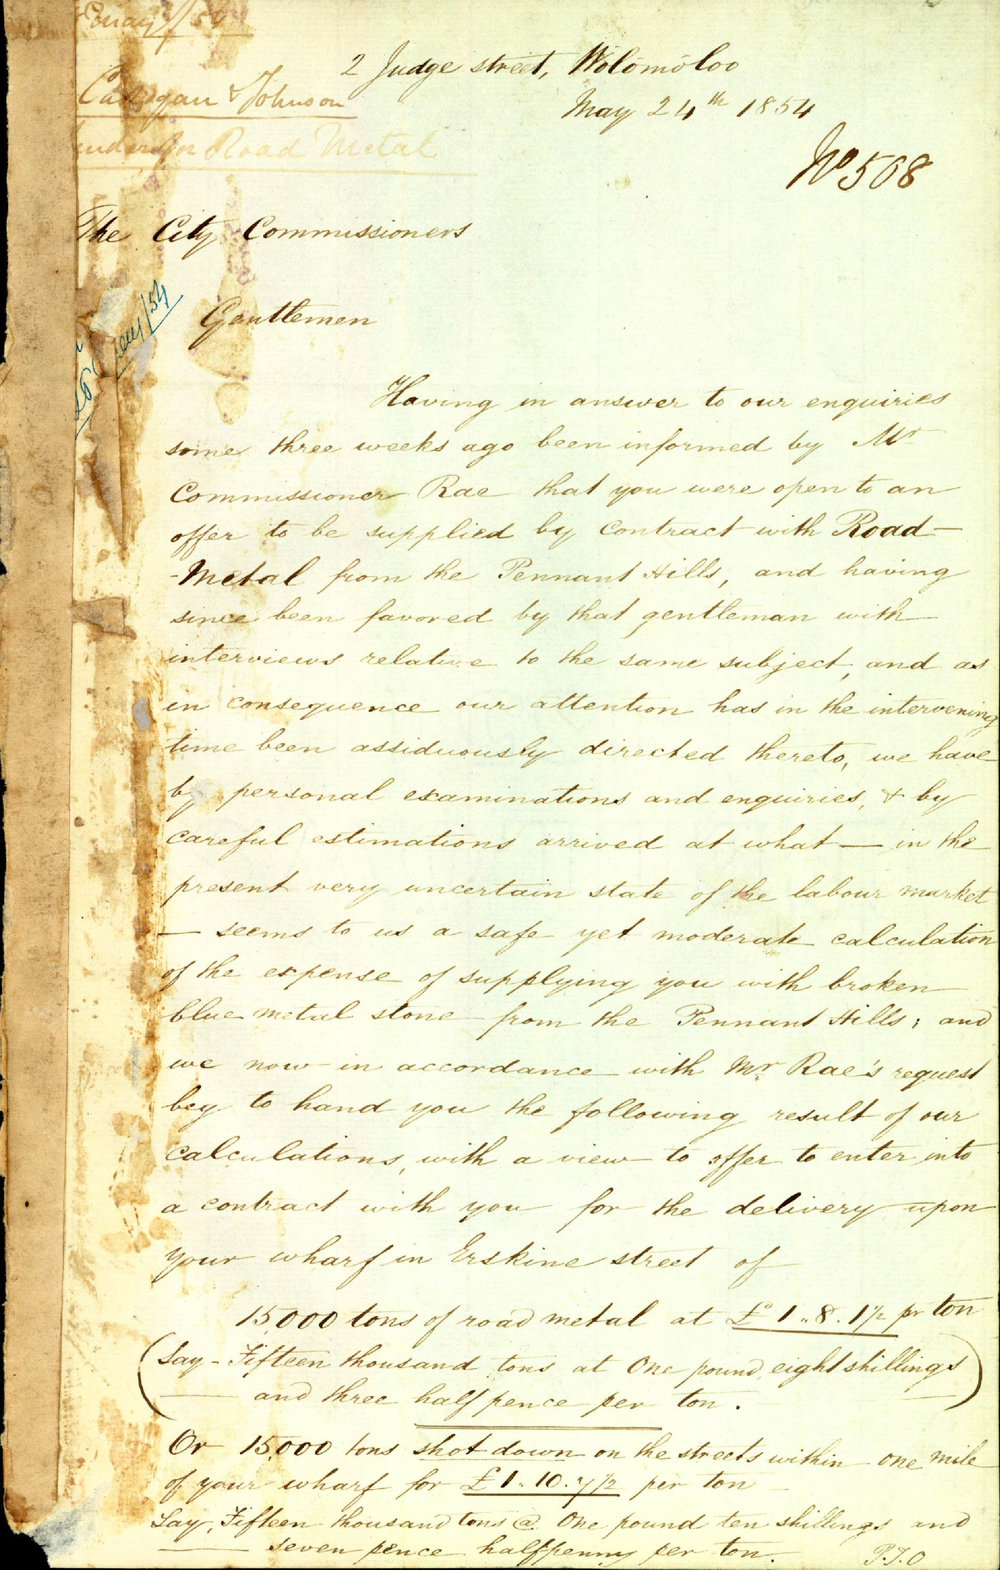 2 Judge street, Wolomoloo
May 24th 1854
& Johnson
Road Metal
No 508
The City Commissioners
/54
Gentlemen
Having in answer to our enquiries
some three weeks ago been informed by Mr
Commissioner Rae that you were open to an
offer to be supplied by contract with Road-
-Metal from the Pennant Hills, and having
since been favored by that gentleman with
interviews relative to the same subject, and as
in consequence our attention has in the intervening
time been assiduously directed thereto, we have
by personal examinations and enquiries, & by
careful estimations arrived at what — in the
present very uncertain state of the labour market
— seems to us a safe yet moderate calculation
of the expense of supplying you with broken
blue metal stone from the Pennant Hills; and
we now in accordance with Mr Rae's request
beg to hand you the following result of our
calculations, with a view to offer to enter into
a contract with you for the delivery upon
your wharf in Erskine street of
15,000 tons of road metal at £1..8.1½ pr ton
(Say - Fifteen thousand tons at One pound, eight shillings
— and three half pence per ton. —)
Or 15,000 tons shot down on the streets within one mile
of your wharf for £1..10.7½ per ton —
Say, Fifteen thousand tons @ One pound ten shillings and
— seven pence halfpenny per ton.
P.T.O